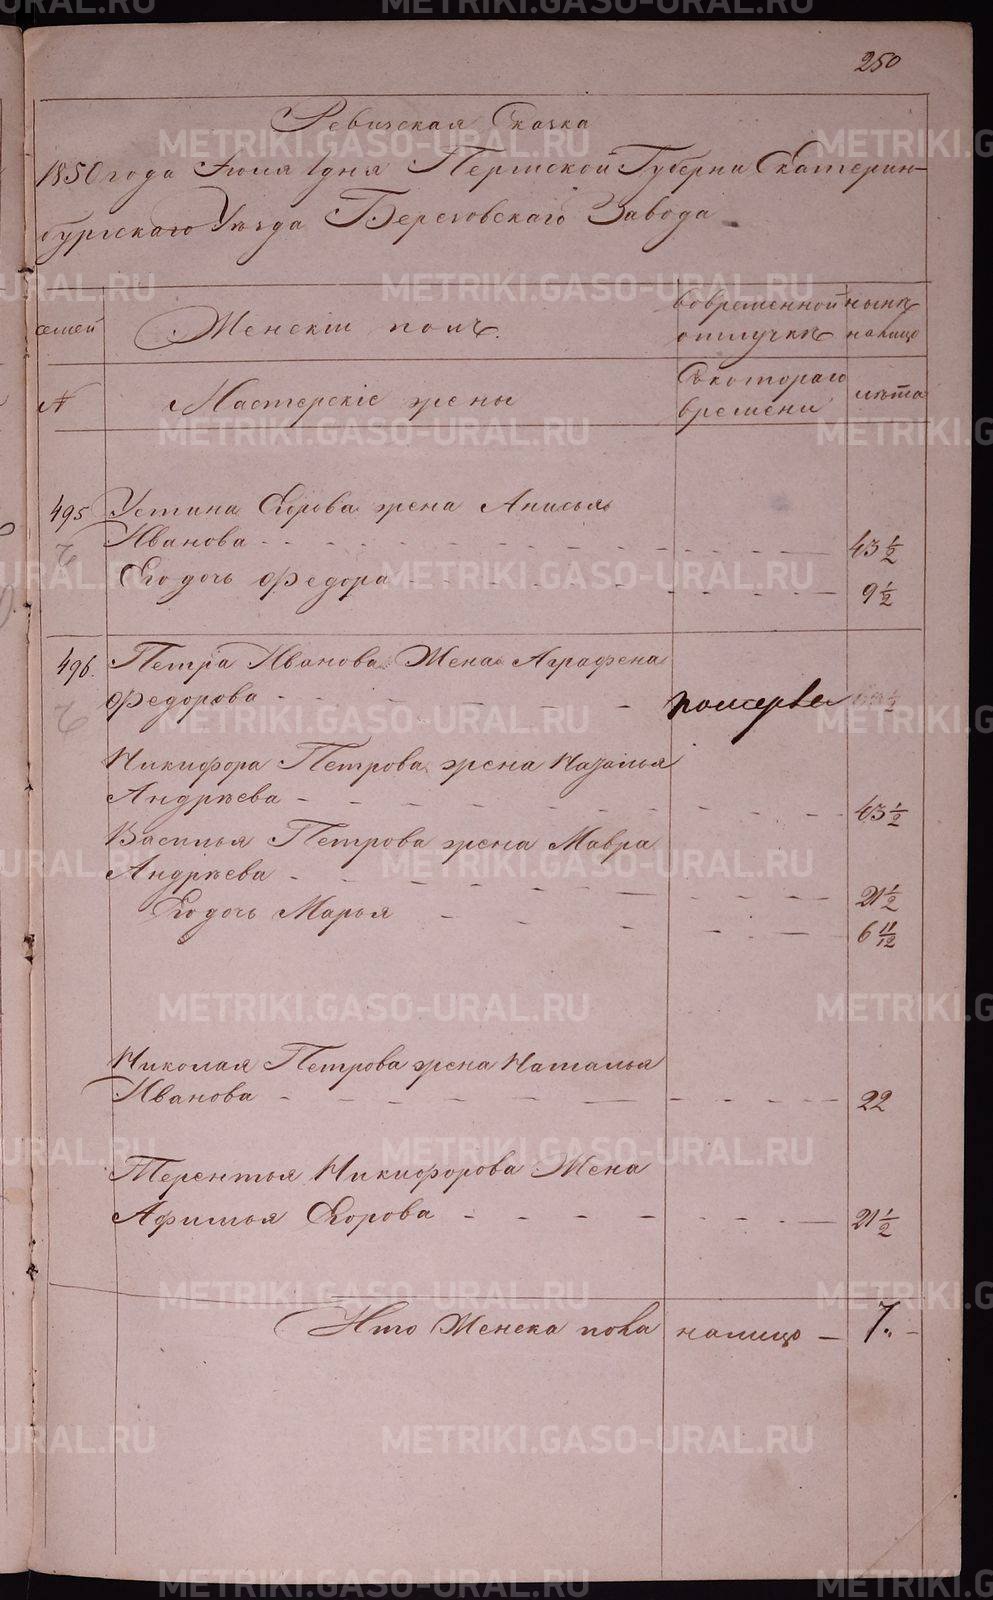 250
Ревизская Сказка
1850 года Июля 1 дня Пермской Губернии Екатерин-
бургского Уезда Березовского Завода
семей
Женский полъ.
во временной
отлучке
ныне
на лицо
№
Мастерские жены
Съ котораго
времени
лѣта
495
Устина Егорова жена Анисья
Иванова
43 1/2
Его дочь Федора
9 1/2
496.
Петра Иванова Жена Аграфена
Федорова
померла
Никифора Петрова жена Наталья
Андреева
43 1/2
Василья Петрова жена Мавра
Андреева
21 1/2
Его дочь Марья
6 11/12
Николая Петрова жена Наталья
Иванова
22
Терентья Никифорова Жена
Афимья Егорова
21 1/2
Ито Женска пола налицо 7.
METRIKI.GASO-URAL.RU